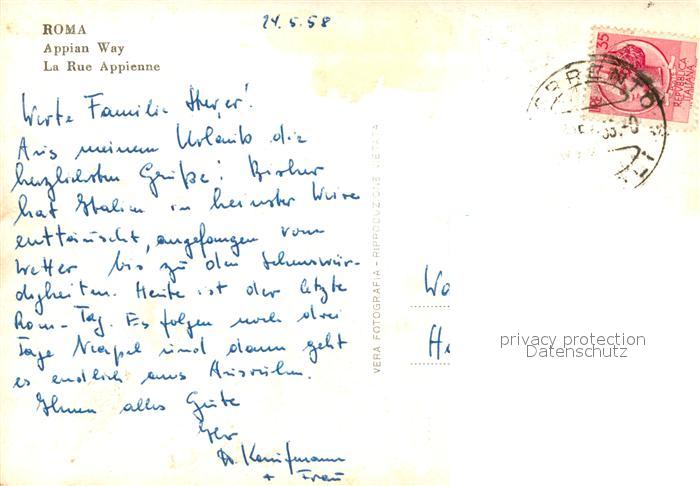 24.5.58
ROMA
Appian Way
La Rue Appienne
35
REPVBBLICA
ITALIANA
LIRE
Werte Familie
Aus meinem Urlaub die
herzlichsten Grüße! Bisher
hat Italien in keinster Weise
enttäuscht, angefangen vom
Wetter bis zu den Sehenswür-
digkeiten. Heute ist der letzte
Rom-Tag. Es folgen noch drei
Tage Neapel und dann geht
es endlich ans Ausruhn.
Ihnen alles Gute
Ihr
Dr. Kaufmann
+ Frau
VERA FOTOGRAFIA - RIPRODUZIONE VIETATA
privacy protection
Datenschutz